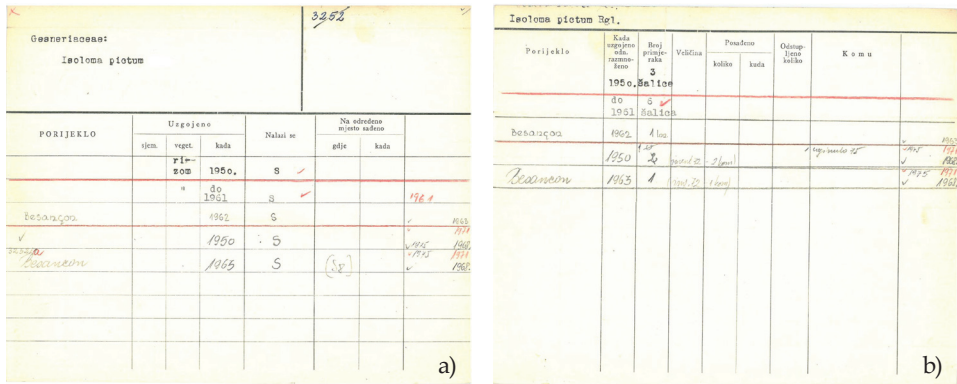 3252
Gesneriaceae:
Isoloma pictum
PORIJEKLO
Uzgojeno
sjem.
veget.
kada
Nalazi se
Na određeno
mjesto sađeno
gdje
kada
ri-
zom 1950. S ✓
" do
1961 S ✓ 1961
Besançon 1962 S ✓ 1963
✓ 1950 S 1971
✓ 1968.
Besancon 1965 S 1971
✓ 1968.
a)
Isoloma pictum Rgl.
Porijeklo
Kada
uzgojeno
odn.
razmno-
ženo
Broj
primje-
raka
Veličina
Posađeno
koliko
kada
Odstup-
ljeno
koliko
Komu
3
1950. šalice
do 6 ✓
1961 šalice
Besançon 1962 1 ✓ 1963
1950 2 ✓ 1975 1971
✓ 1968
Besancon 1963 1 ✓ 1975 1971
✓ 1968.
b)